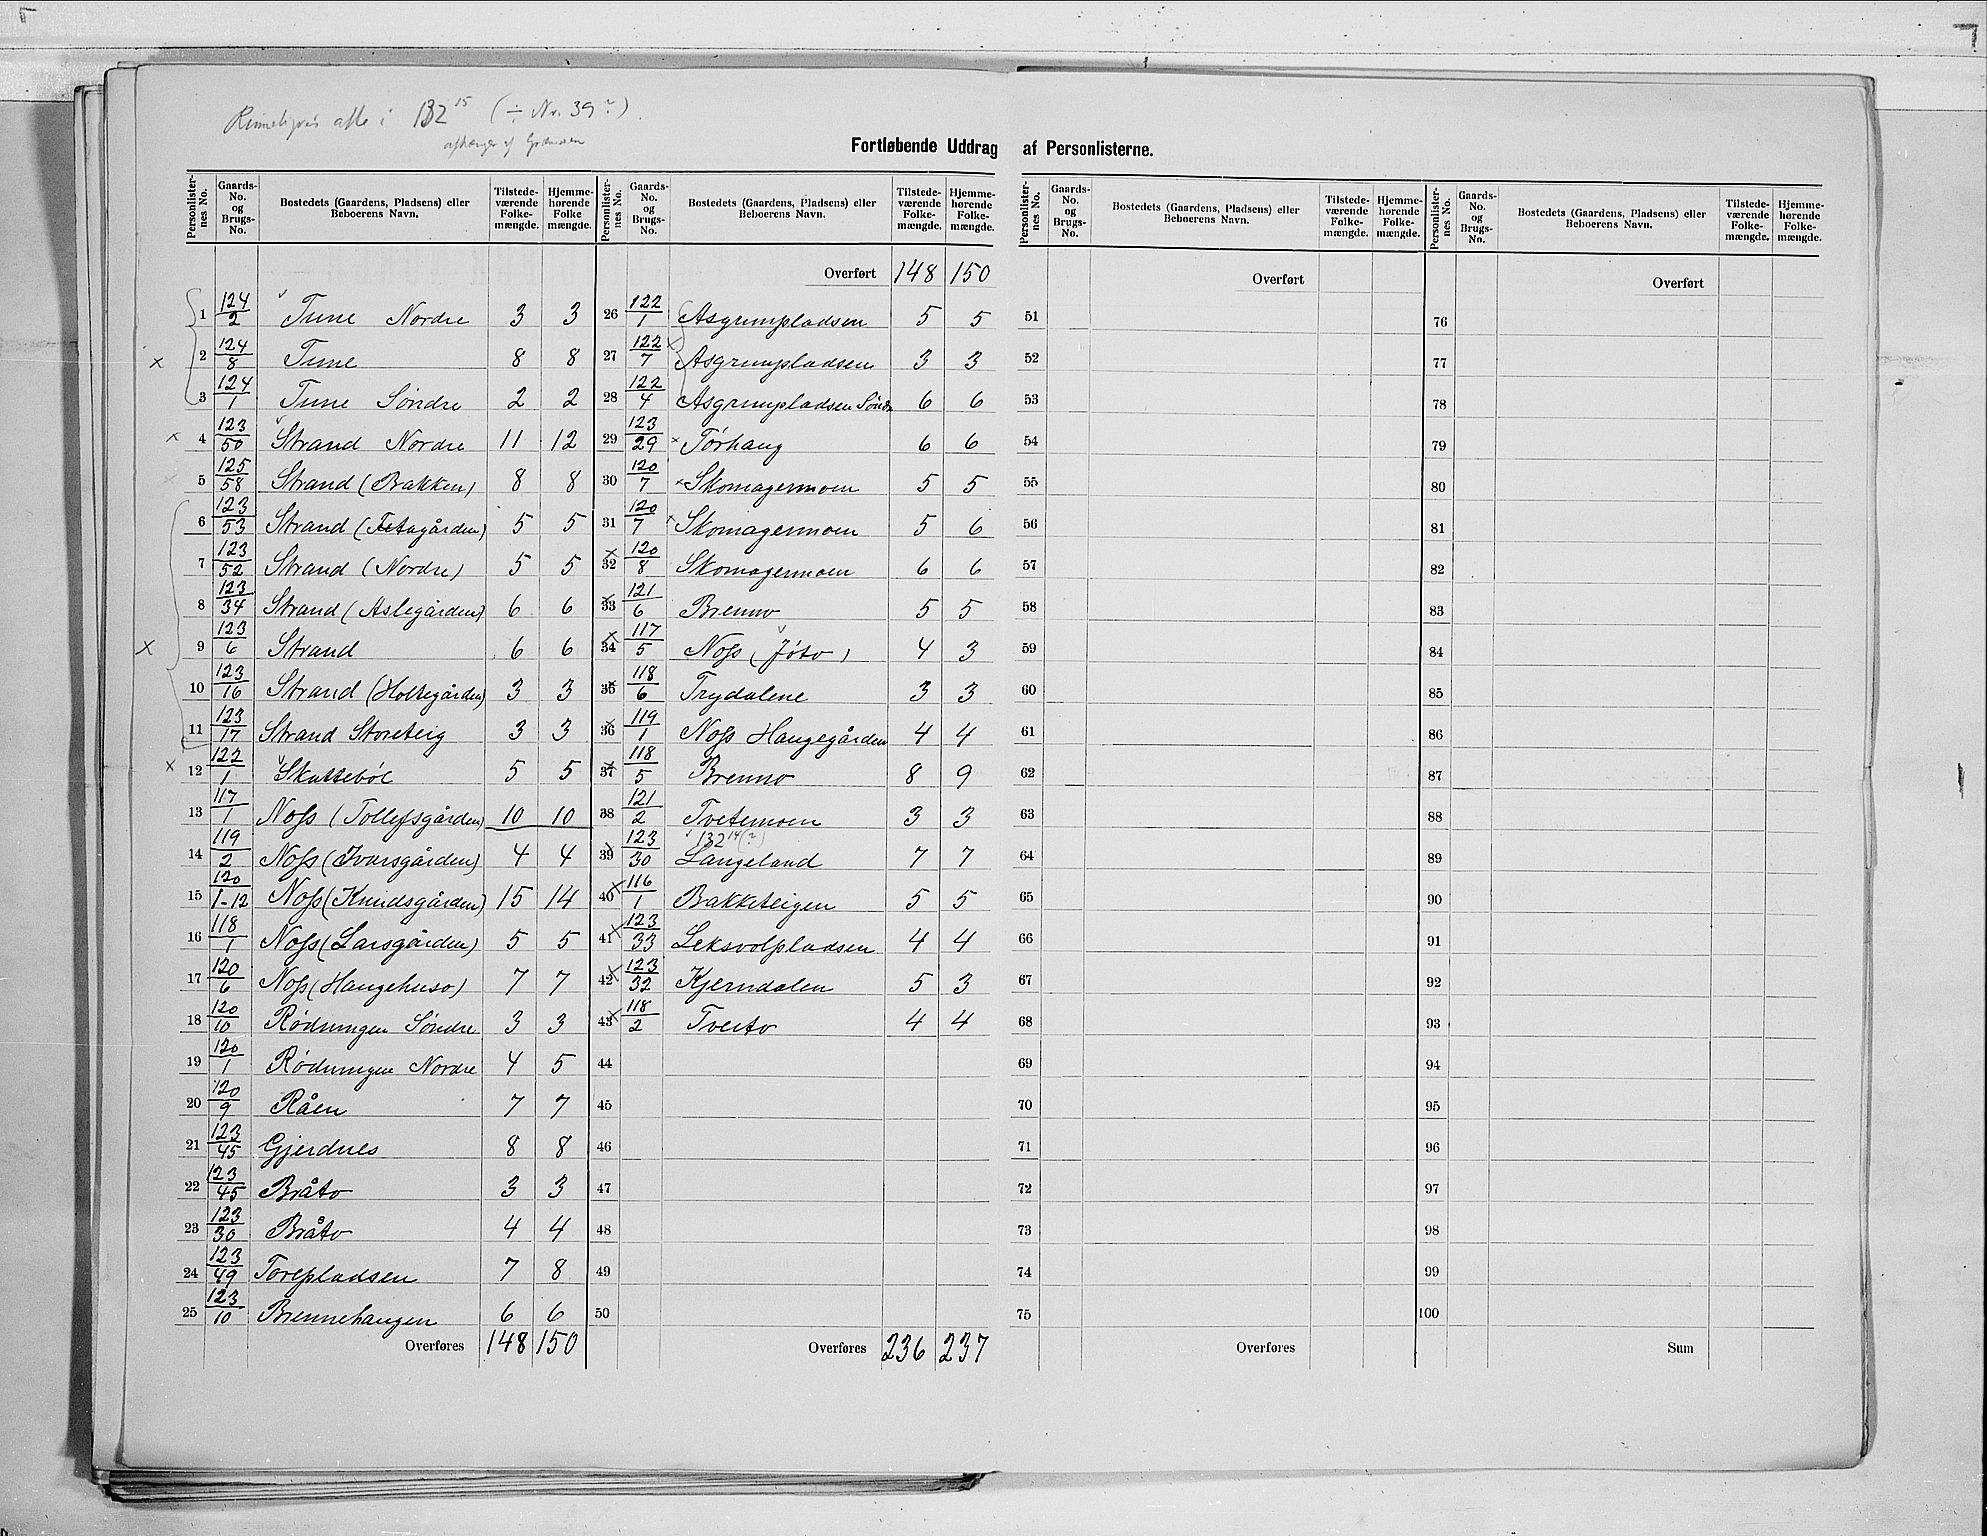 Rimeligvis alle i 132¹⁵ (÷ Nr. 39?).
afhænger af
Fortløbende Uddrag af Personlisterne.
Personlister-nes No. | Gaards-No. og Brugs-No. | Bostedets (Gaardens, Pladsens) eller Beboerens Navn. | Tilstede-værende Folke-mængde. | Hjemme-hørende Folke mængde.
Personlister-nes No. | Gaards-No. og Brugs-No. | Bostedets (Gaardens, Pladsens) eller Beboerens Navn. | Tilstede-værende Folke-mængde. | Hjemme-hørende Folke-mængde.
Personlister-nes No. | Gaards-No. og Brugs-No. | Bostedets (Gaardens, Pladsens) eller Beboerens Navn. | Tilstede-værende Folke-mængde. | Hjemme-hørende Folke-mængde.
Personlister-nes No. | Gaards-No. og Brugs-No. | Bostedets (Gaardens, Pladsens) eller Beboerens Navn. | Tilstede-værende Folke-mængde. | Hjemme-hørende Folke-mængde.
1 124/2 Tune Nordre 3 3
x 2 124/8 Tune 8 8
3 124/1 Tune Søndre 2 2
x 4 123/50 Strand Nordre 11 12
x 5 125/58 Strand (Bakken) 8 8
6 123/53 Strand (Fetagården) 5 5
7 123/52 Strand (Nordre) 5 5
8 123/34 Strand (Aslegården) 6 6
x 9 123/6 Strand 6 6
10 123/16 Strand (Holtegården) 3 3
11 123/17 Strand Storeteig 3 3
x 12 122/1 Skattebøl 5 5
13 117/1 Noss (Tollefsgården) 10 10
14 119/2 Noss (Ivarsgården) 4 4
15 120/1-12 Noss (Knudsgården) 15 14
16 118/1 Noss (Larsgården) 5 5
17 120/6 Noss (Haugehuso) 7 7
18 120/10 Rødningen Søndre 3 3
19 120/1 Rødningen Nordre 4 5
20 120/9 Råen 7 7
21 123/45 Gjerdnes 8 8
22 123/45 Bråto 3 3
23 123/30 Bråto 4 4
24 123/49 Torepladsen 7 8
25 123/10 Brennehaugen 6 6
Overføres 148 150
Overført 148 150
26 122/1 Asgrimpladsen 5 5
27 122/7 x Asgrimpladsen 3 3
28 122/4 Asgrimpladsen Søndr 6 6
29 123/29 x Tørhaug 6 6
30 120/7 x Skomagermoen 5 5
31 120/7 x Skomagermoen 5 6
x 32 120/8 Skomagermoen 6 6
x 33 121/6 Brenno 5 5
x 34 117/5 Noss (Jøto) 4 3
x 35 118/6 Trydalene 3 3
x 36 119/1 Noss Haugegården 4 4
x 37 118/5 Brenno 8 9
38 121/2 Tvetemoen 3 3
132¹⁴(?)
x 39 123/30 Langeland 7 7
40 x 116/1 Bakketeigen 5 5
41 x 123/33 Leksvolpladsen 4 4
42 x 123/32 Kjerndalen 5 3
43 x 118/2 Tveito 4 4
44
45
46
47
48
49
50
Overføres 236 237
Overført
51
52
53
54
55
56
57
58
59
60
61
62
63
64
65
66
67
68
69
70
71
72
73
74
75
Overføres
Overført
76
77
78
79
80
81
82
83
84
85
86
87
88
89
90
91
92
93
94
95
96
97
98
99
100
Sum